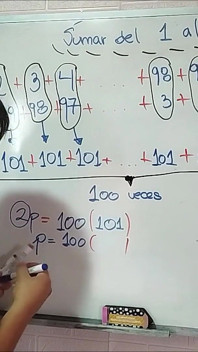 Sumar del 1 al
+ 3 + 4 + . . . + 98 + 9
98 97 . . . + 3 +
101 + 101 + 101 + . . . . + 101 +
100 veces
2p = 100 (101)
p = 100 ( )